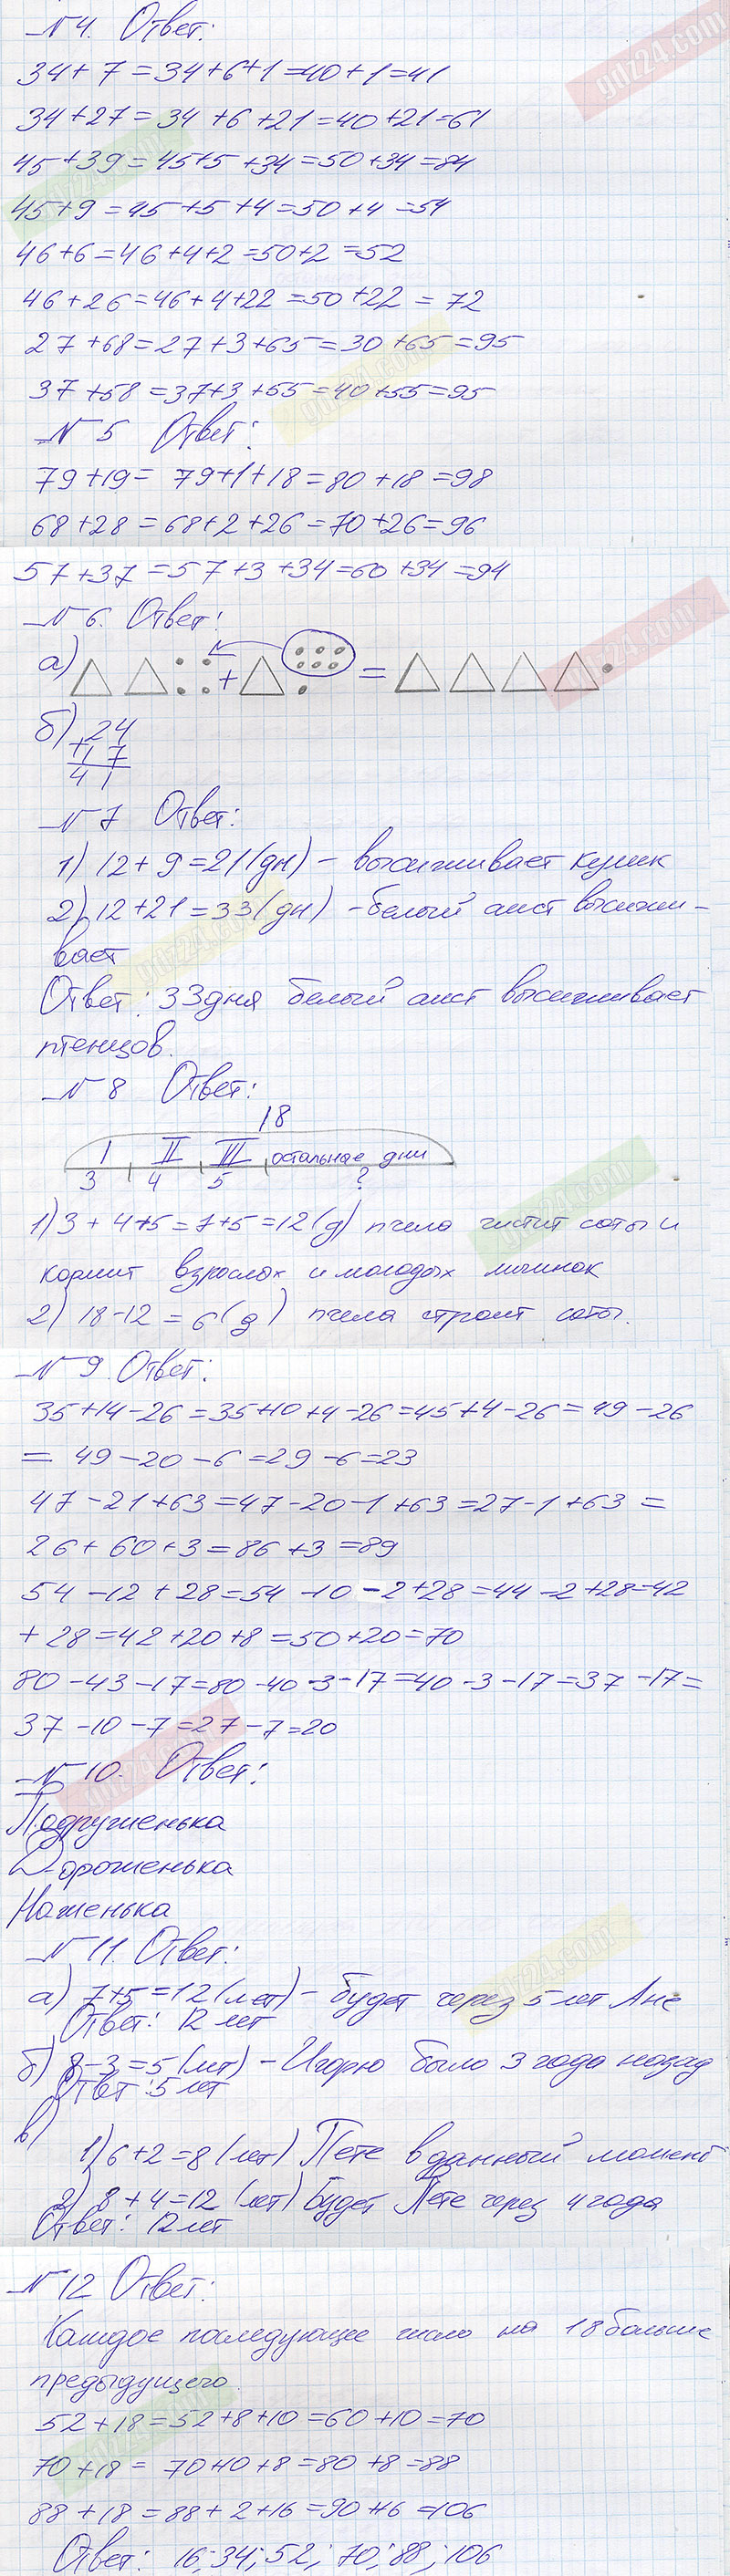 №4. Ответ:
34+7=34+6+1=40+1=41
34+27=34+6+21=40+21=61
45+39=45+5+34=50+34=84
45+9=45+5+4=50+4=54
46+6=46+4+2=50+2=52
46+26=46+4+22=50+22=72
27+68=27+3+65=30+65=95
37+58=37+3+55=40+55=95
№5 Ответ:
79+19=79+1+18=80+18=98
68+28=68+2+26=70+26=96
57+37=57+3+34=60+34=94
№6. Ответ:
а) + =
б) 24
+17
41
№7 Ответ:
1) 12+9=21(дн) – высиживает кулик
2) 12+21=33(дн) – белый аист высижи-
вает
Ответ: 33дня белый аист высиживает
птенцов.
№8 Ответ:
18
I II III остальные дни
3 4 5 ?
1) 3+4+5=7+5=12(д) пчела чистит соты и
кормит взрослых и молодых личинок
2) 18-12=6(д) пчела строит соты.
№9. Ответ:
35+14-26=35+10+4-26=45+4-26=49-26
=49-20-6=29-6=23
47-21+63=47-20-1+63=27-1+63=
26+60+3=86+3=89
54-12+28=54-10-2+28=44-2+28=42
+28=42+20+8=50+20=70
80-43-17=80-40-3-17=40-3-17=37-17=
37-10-7=27-7=20
№10. Ответ:
Подруженька
Дороженька
Ноженька
№11. Ответ:
а) 7+5=12(лет) – будет через 5 лет Ане
Ответ: 12 лет
б) 8-3=5(лет) – Игорю было 3 года назад
Ответ: 5 лет
в)
1) 6+2=8(лет) Пете в данный момент
2) 8+4=12(лет) будет Пете через 4 года
Ответ: 12 лет
№12 Ответ:
Каждое последующее число на 18 больше
предыдущего.
52+18=52+8+10=60+10=70
70+18=70+10+8=80+8=88
88+18=88+2+16=90+16=106
Ответ: 16; 34; 52; 70; 88; 106
gdz24.com